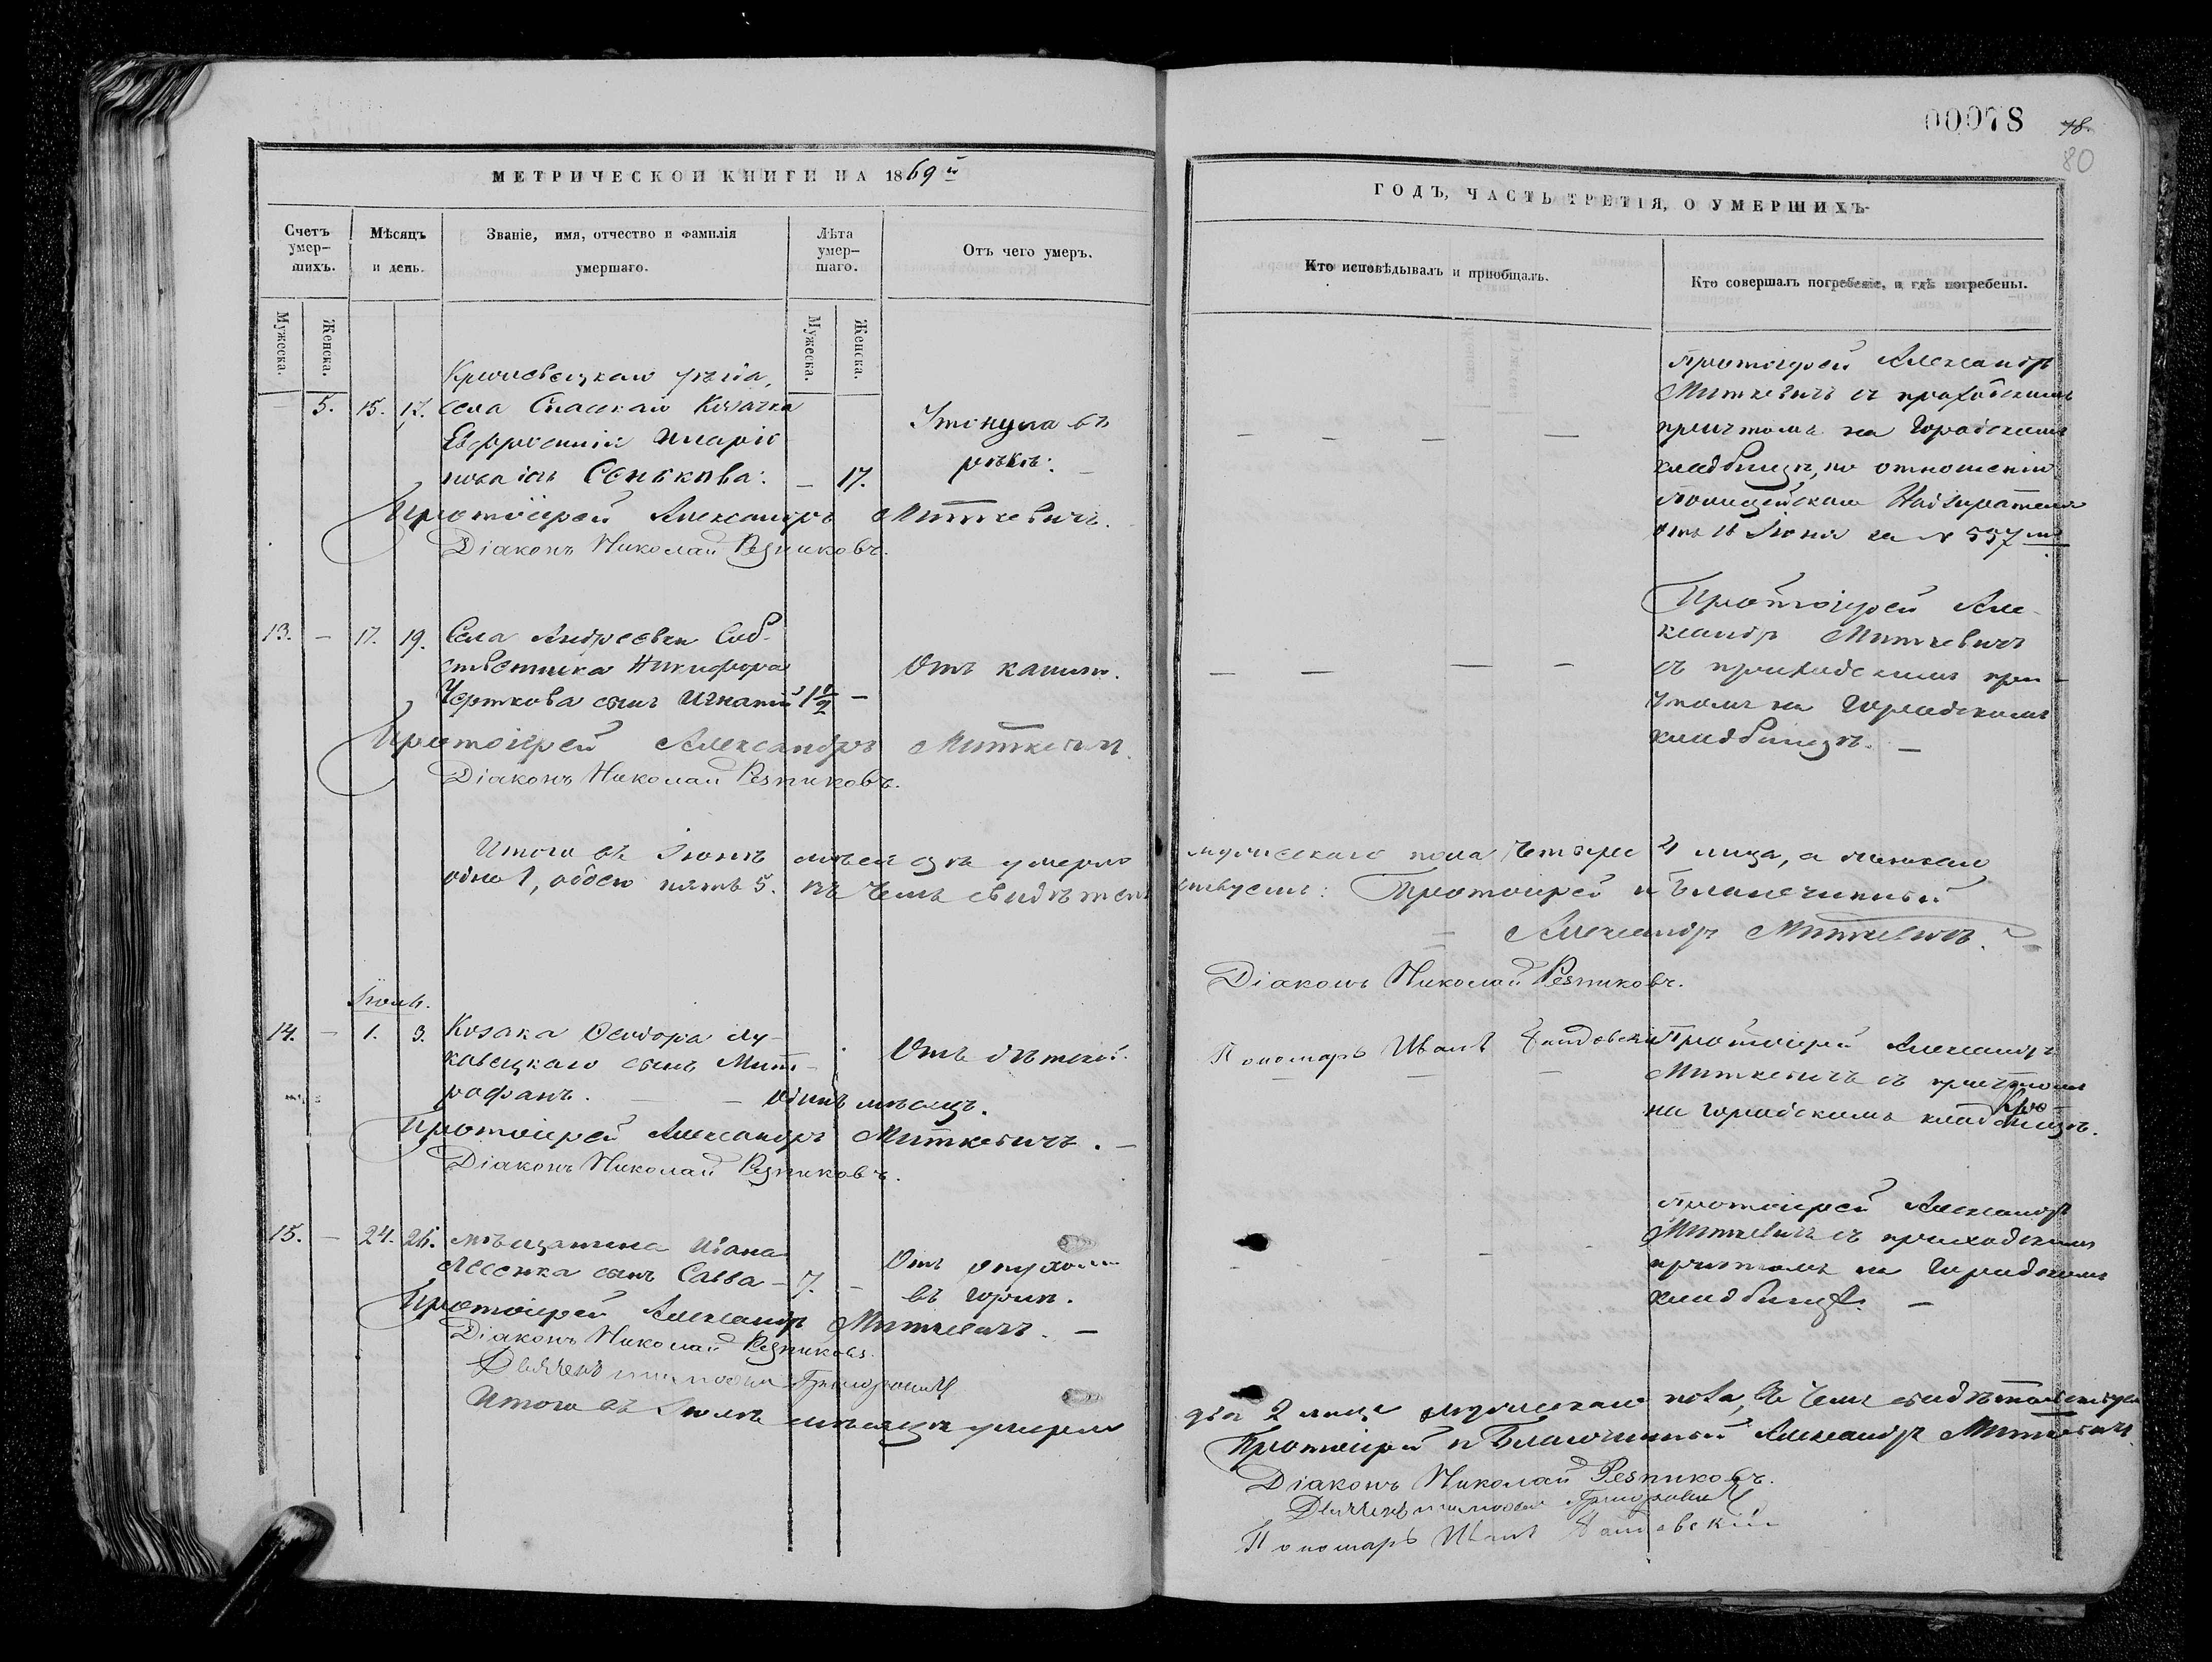 МЕТРИЧЕСКОЙ КНИГИ НА 1869й
Счетъ умер-шихъ.
Мѣсяцъ и день.
Званіе, имя, отчество и фамилія умершаго.
Лѣта умер-шаго.
Отъ чего умеръ.
Мужеска.
Женска.
Мужеска.
Женска.
Кролевецкаго уѣзда,
5. 15. 17. села Спаскаго Козачка
Евфросинія Иларіо
нова Сенькова: — 17.
Утонула въ
рѣкѣ:
Протоіерей Александръ Миткевичъ.
Діаконъ Николай Резниковъ.
13. — 17. 19. Села Андреевки Соб-
ственника Никифора
Черткова сынъ Игнатій 1 1/2 —
Отъ кашлю.
Протоіерей Александръ Миткевичъ.
Діаконъ Николай Резниковъ.
Итого въ Іюнѣ мѣсяцѣ умерло
одно 1, обоего пять 5. въ чемъ свидѣтель
Іюль.
14. — 1. 3. Козака Ѳеодора Лу-
кавецкаго сынъ Мит-
рофанъ. — — одинъ мѣсяцъ.
Отъ дѣтской.
Протоіерей Александръ Миткевичъ. —
Діаконъ Николай Резниковъ.
15. — 24. 26. мѣщанина Ивана
сынъ Савва — 7. —
Отъ опухоли
въ горлѣ.
Протоіерей Александръ Миткевичъ. —
Діаконъ Николай Резниковъ.
Итого въ Іюлѣ мѣсяцѣ умерло
00078
78.
80
ГОДЪ, ЧАСТЬ ТРЕТІЯ, О УМЕРШИХЪ.
Кто исповѣдывалъ и пріобщалъ.
Кто совершалъ погребеніе, и гдѣ погребены.
Протоіерей Александръ
Миткевичъ съ приходскимъ
причтомъ на Городскомъ
кладбищѣ, по отношенію
Полицейскаго Надзирателя
отъ 16 Іюня за N 557мъ
Протоіерей Але-
ксандръ Миткевичъ
съ приходскимъ при-
чтомъ на Городскомъ
кладбищѣ. —
мужескаго пола четыре 4 лица, а женскаго
ствуемъ: Протоіерей и Благочинный
Александръ Миткевичъ.
Діаконъ Николай Резниковъ.
Пономарь Иванъ
Протоіерей Александръ
Миткевичъ съ причтомъ
на Городскомъ кладбищѣ.
Протоіерей Александръ
Миткевичъ съ приходскимъ
причтомъ на Городскомъ
кладбищѣ. —
два 2 лица мужескаго пола, въ чемъ свидѣтельствуемъ
Протоіерей и Благочинный Александръ Миткевичъ.
Діаконъ Николай Резниковъ.
Пономарь Иванъ